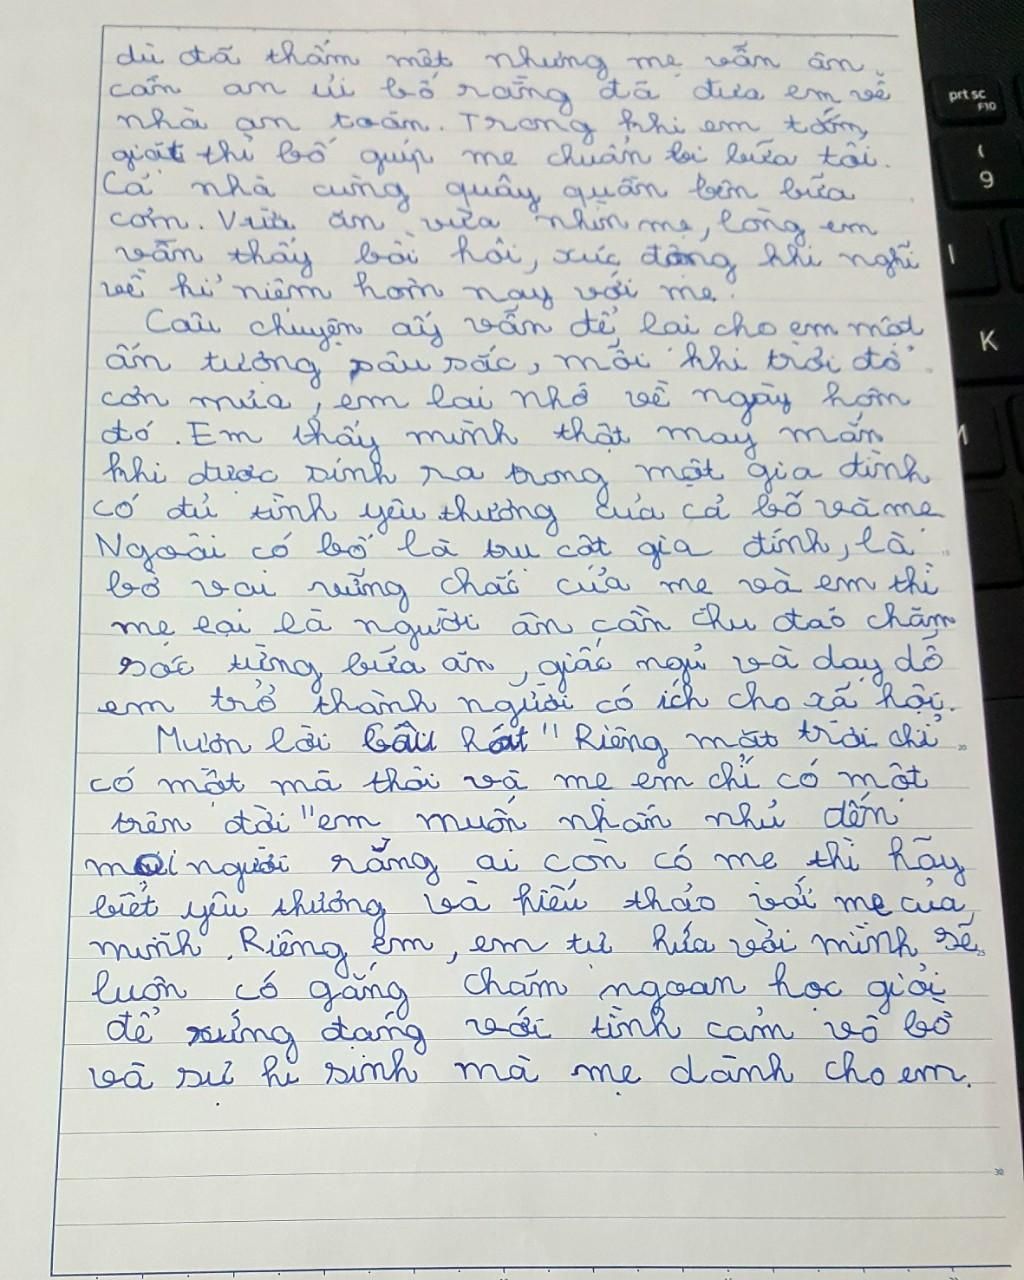 dù đã thấm mệt nhưng mẹ vẫn ân
cần an ủi bố rằng đã đưa em về
nhà an toàn. Trong khi em tắm,
giặt thì bố giúp mẹ chuẩn bị bữa tối.
Cả nhà cùng quây quần bên bữa
cơm. Vừa ăn vừa nhìn mẹ, lòng em
vẫn thấy bồi hồi, xúc động khi nghĩ
về kỉ niệm hôm nay với mẹ.
Câu chuyện ấy vẫn để lại cho em một
ấn tượng sâu sắc, mỗi khi trời đổ
cơn mưa, em lại nhớ về ngày hôm
đó. Em thấy mình thật may mắn
khi được sinh ra trong một gia đình
có đủ tình yêu thương của cả bố và mẹ
Ngoài có bố là trụ cột gia đình, là
bờ vai vững chắc của mẹ và em thì
mẹ lại là người ân cần chu đáo chăm
sóc từng bữa ăn, giấc ngủ và dạy dỗ
em trở thành người có ích cho xã hội.
Mượn lời câu hát "Riêng mặt trời chỉ
có một mà thôi và mẹ em chỉ có một
trên đời" em muốn nhắn nhủ đến
mọi người rằng ai còn có mẹ thì hãy
biết yêu thương và hiếu thảo với mẹ của
mình. Riêng em, em tự hứa với mình sẽ
luôn cố gắng chăm ngoan học giỏi
để xứng đáng với tình cảm vô bờ
và sự hi sinh mà mẹ dành cho em.
prt sc
F10
(
9
I
K
30